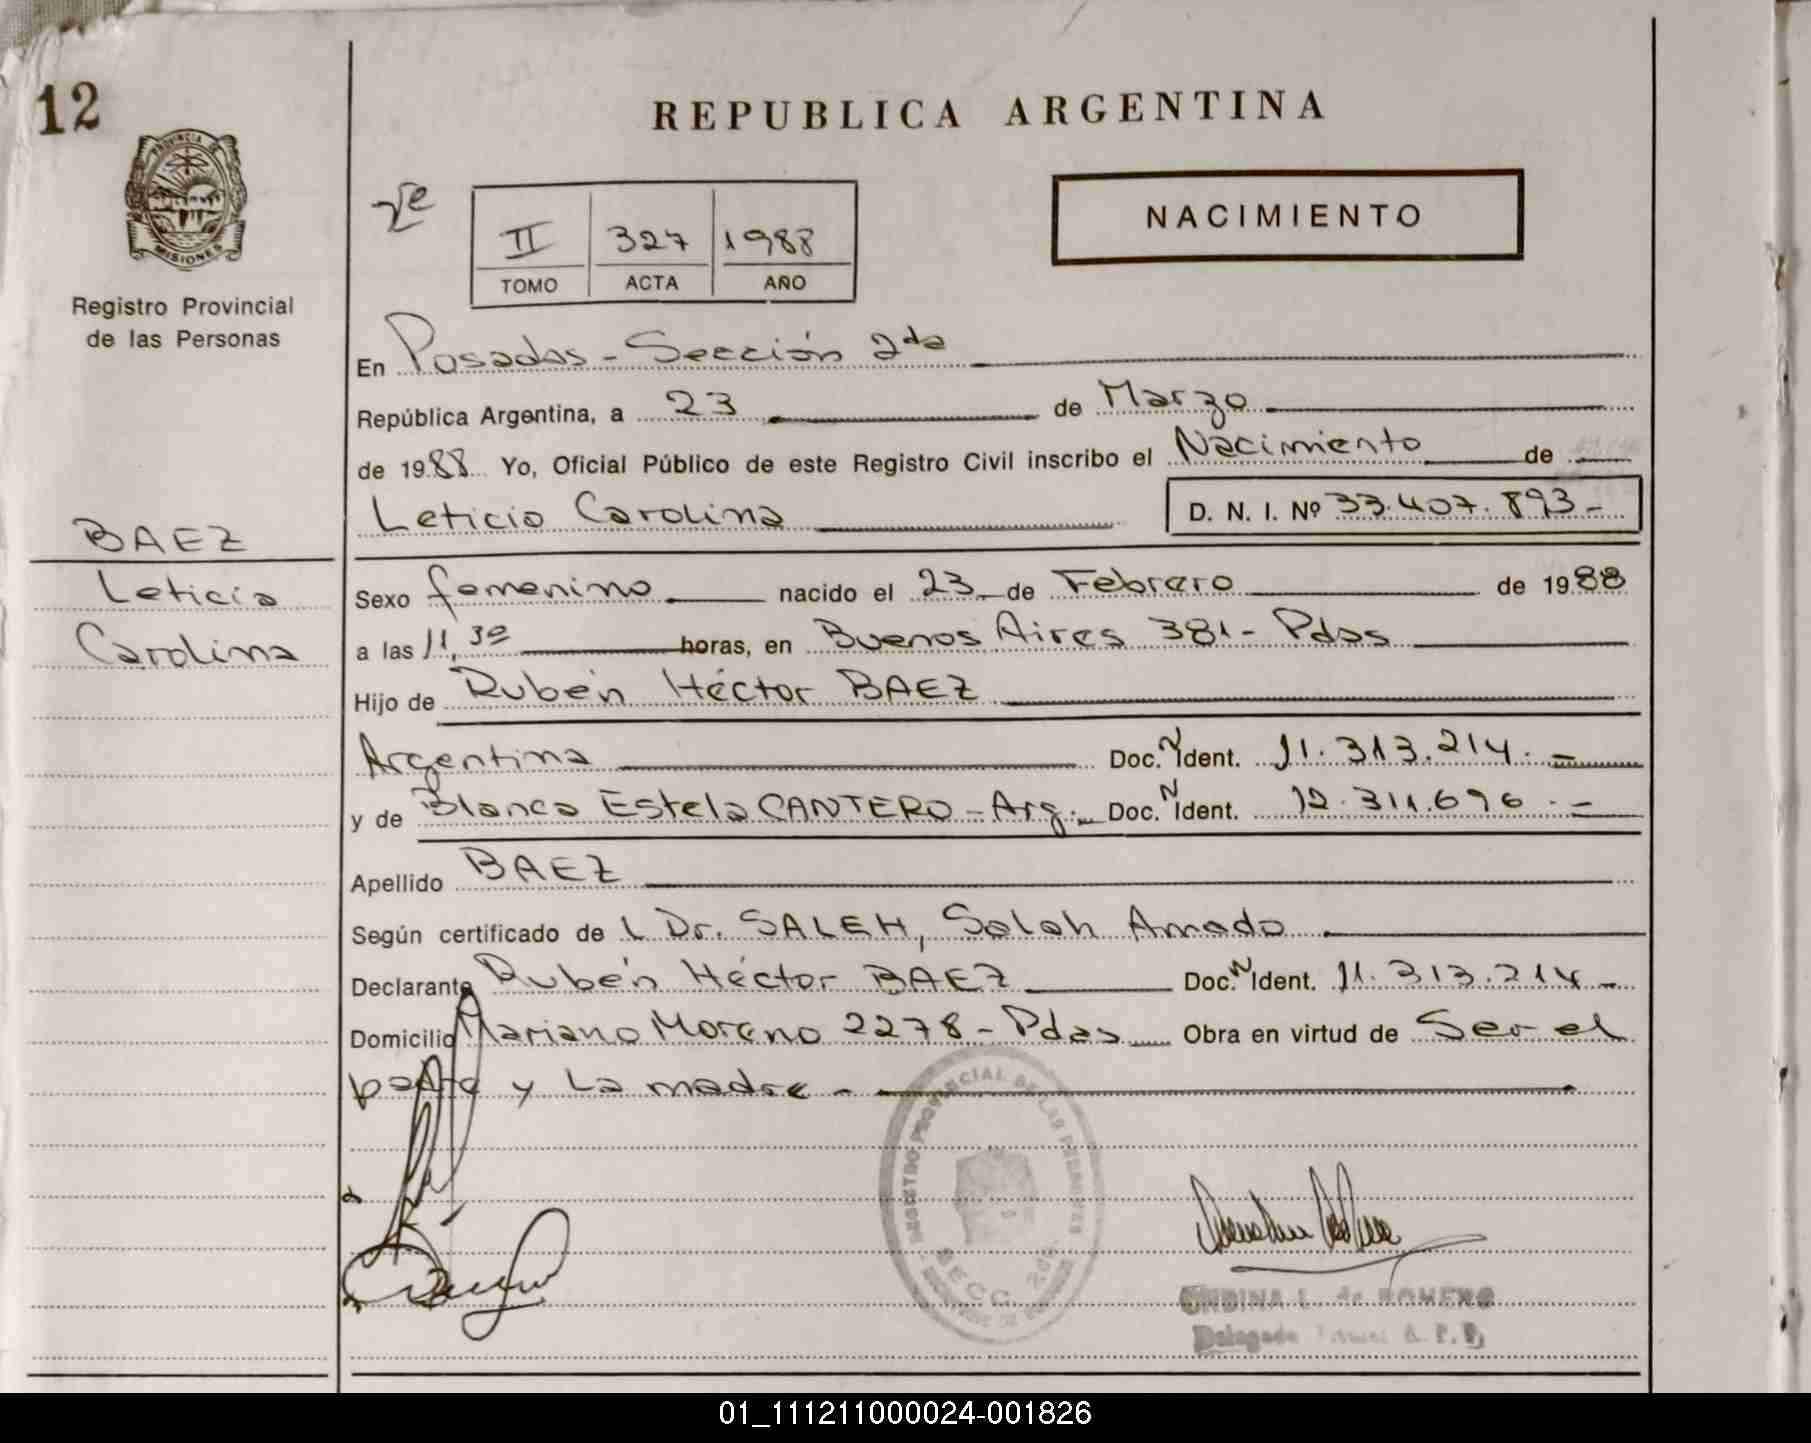 12
REPUBLICA ARGENTINA
PROVINCIA DE
MISIONES
Registro Provincial
de las Personas
II 327 1988
TOMO ACTA AÑO
NACIMIENTO
En Posadas - Sección 2da
República Argentina, a 23 de Marzo
de 1988 Yo, Oficial Público de este Registro Civil inscribo el Nacimiento de
Leticia Carolina D. N. I. Nº 33.407.893-
BAEZ
Leticia
Carolina
Sexo femenino nacido el 23 de Febrero de 1988
a las 11,30 horas, en Buenos Aires 381 - Pdas
Hijo de Rubén Héctor BAEZ
Argentina Doc. N Ident. 11.313.214.-
y de Blanca Estela CANTERO - Arg. Doc. N Ident. 12.311.696.-
Apellido BAEZ
Según certificado de L Dr. SALEH, Saleh Amado
Declarante Rubén Héctor BAEZ Doc. N Ident. 11.313.214-
Domicilio Mariano Moreno 2278 - Pdas Obra en virtud de Ser el
padre y La madre -
REGISTRO PROVINCIAL DE LAS PERSONAS
SECC. 2da.
ONDINA L. de ROMERO
Delegada
01_111211000024-001826